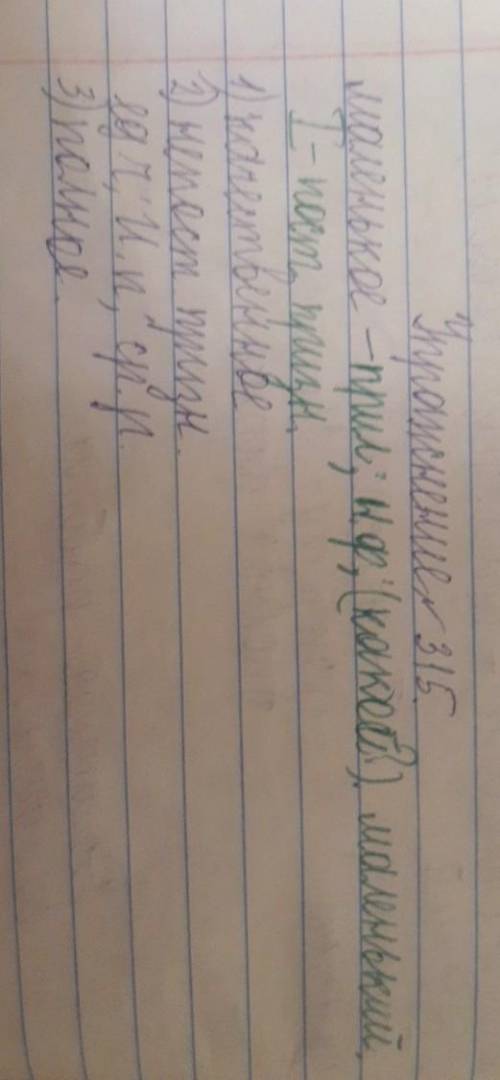 Упражнение 315.
маленькое – прил; н.ф; (какой?) маленький,
I – пост. призн.
1) качественное
2) непост. призн.
ед. ч, И. п, ср. р.
3) полное.